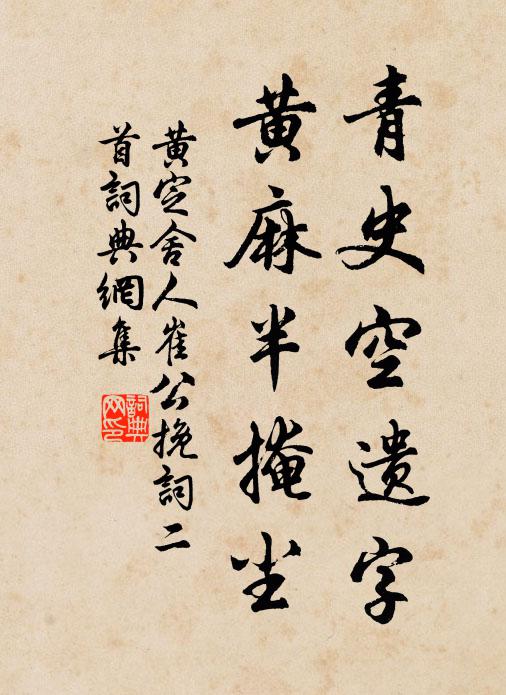 青史空遗字
黄麻半掩尘
黄定舍人崔公挽詞二
首詞典網集
詞典
网印